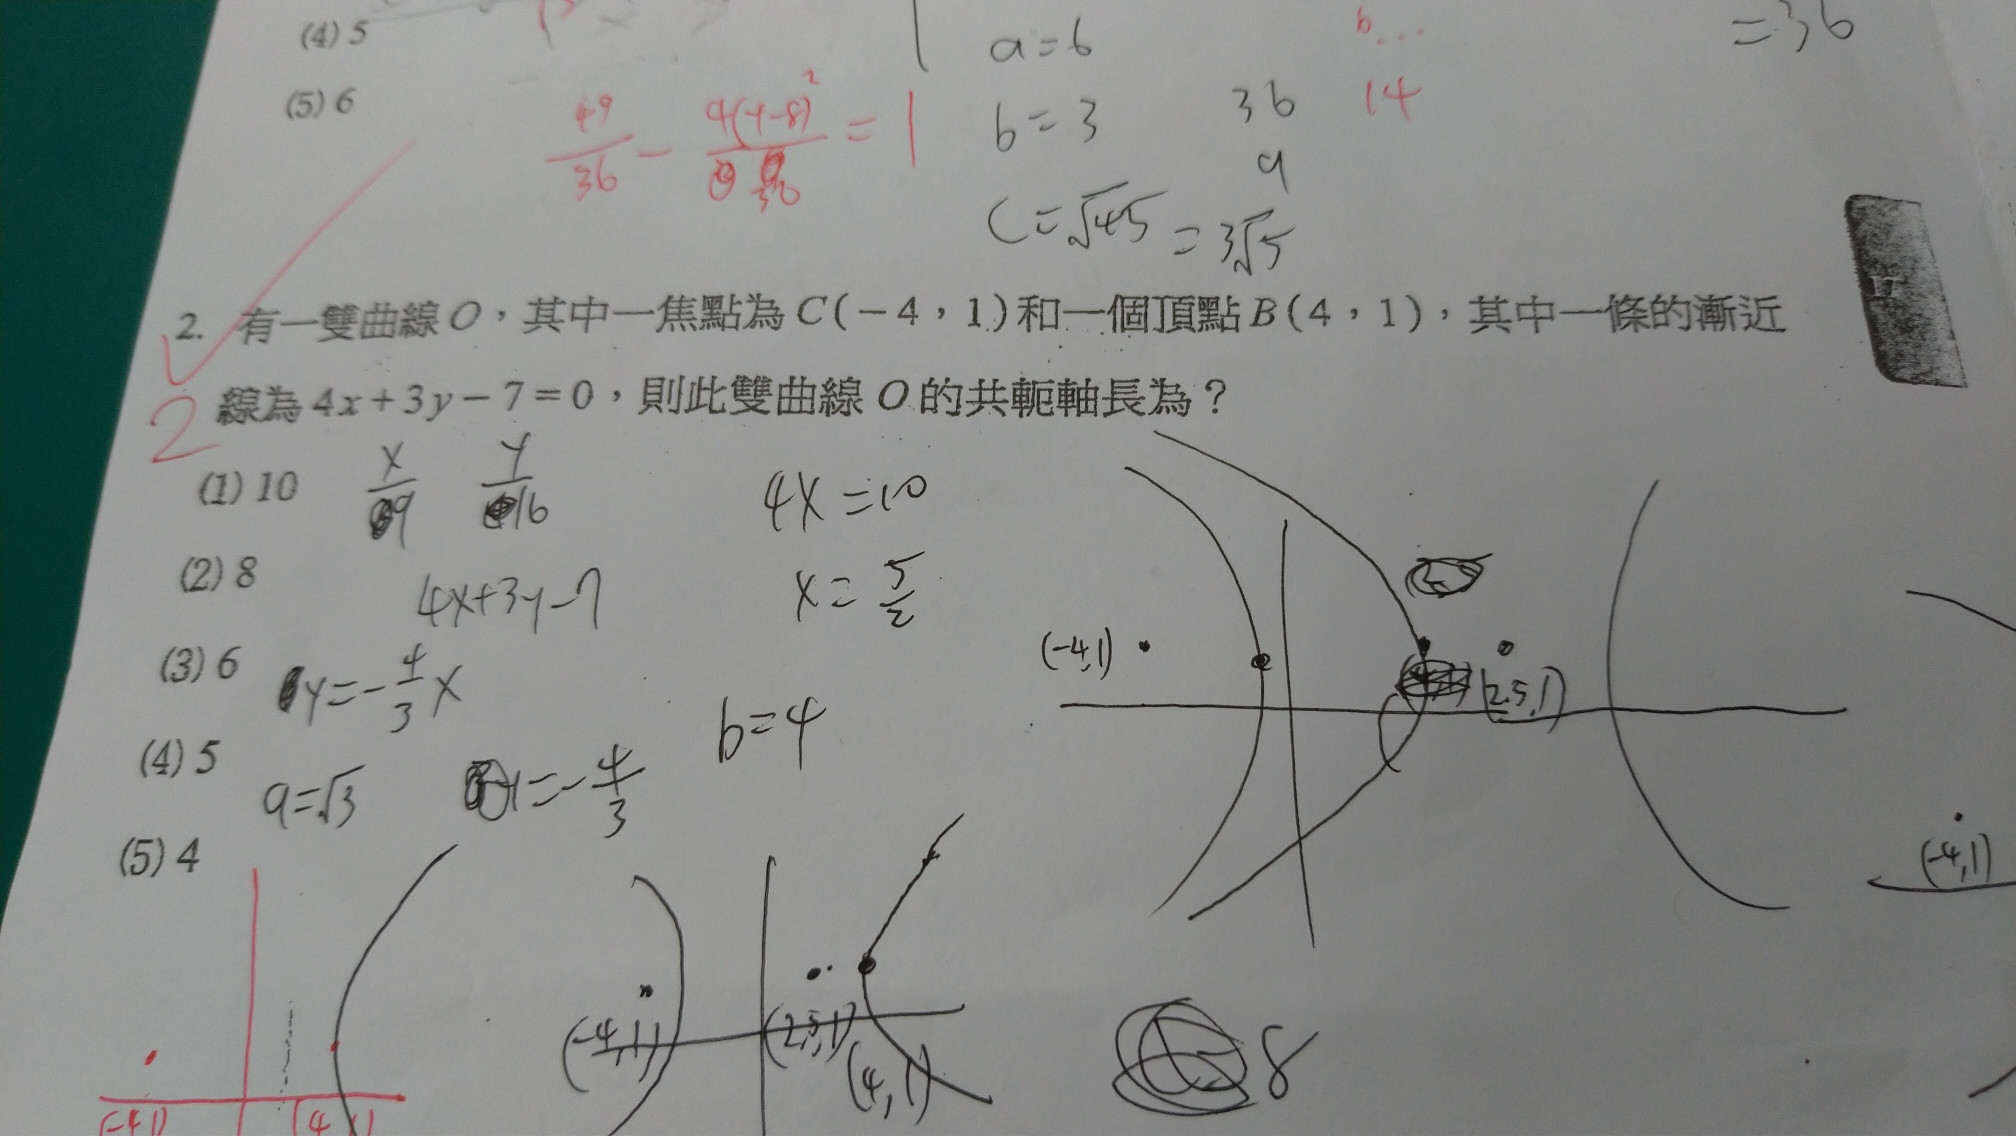 (4) 5
(5) 6
a=6
b=3
36
9
14
=36
49/36 - 4(y-8)²/36 = 1
c=√45 = 3√5
2. 有一雙曲線O，其中一焦點為C(-4，1)和一個頂點B(4，1)，其中一條的漸近
線為4x+3y-7=0，則此雙曲線O的共軛軸長為？
2
(1) 10
x/9 y/16
4x=10
(2) 8
4x+3y-7
x=5/2
(3) 6
y=-4/3x
b=4
(4) 5
a=√3
y=-4/3
(5) 4
(-4,1)
(2.5,1)
(-4,1)
(-4,1)
(2,5,1)
(4,1)
8
(-4,1)
(4,1)